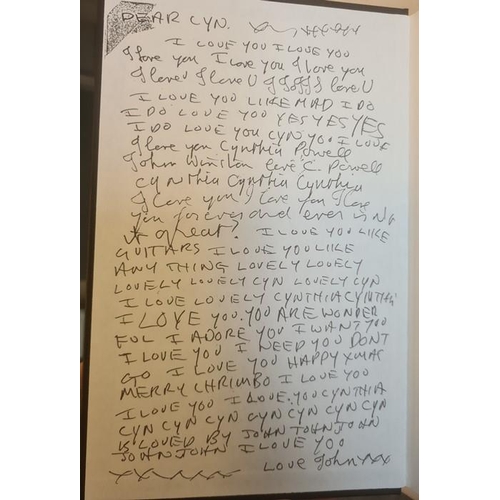 DEAR CYN.
I LOVE YOU I LOVE YOU
I love you I love you I love you
I love U I love U I I love U
I LOVE YOU LIKE MAD I DO
I DO LOVE YOU YES YES YES
I DO LOVE YOU CYN YOU I LOVE
I love you Cynthia Powell
John Winston love C. Powell
Cynthia Cynthia Cynthia
I love you I love you I love
you forever and ever isNt
it great? I LOVE YOU LIKE
GUITARS I LOVE YOU LIKE
ANY THING LOVELY LOVELY
LOVELY LOVELY CYN LOVELY CYN
I LOVE LOVELY CYNTHIA CYNTHIA
I LOVE YOU. YOU ARE WONDER
FUL I ADORE YOU I WANT YOU
I LOVE YOU I NEED YOU DONT
GO I LOVE YOU HAPPY XMAS
MERRY CHRIMBO I LOVE YOU
I LOVE YOU I LOVE YOU CYNTHIA
CYN CYN CYN CYN CYN CYN CYN
IS LOVED BY JOHN JOHN JOHN
JOHN JOHN I LOVE YOU
LOVE John xxx